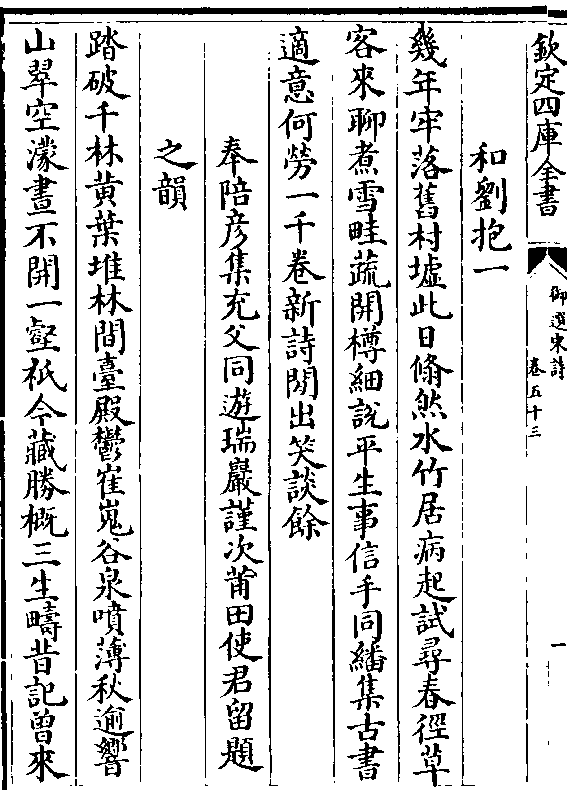 欽定四庫全書
御選宋詩
卷五十三
一
和劉抱一
幾年牢落舊村墟此日翛然水竹居病起試尋春徑草
客來聊煮雪畦蔬開樽細說平生事信手同繙集古書
適意何勞一千卷新詩閒出笑談餘
奉陪彥集充父同遊瑞巖謹次莆田使君留題
之韻
踏破千林黄葉堆林間臺殿鬱崔嵬谷泉噴薄秋逾響
山翠空濛晝不開一壑祇今藏勝概三生疇昔記曾來